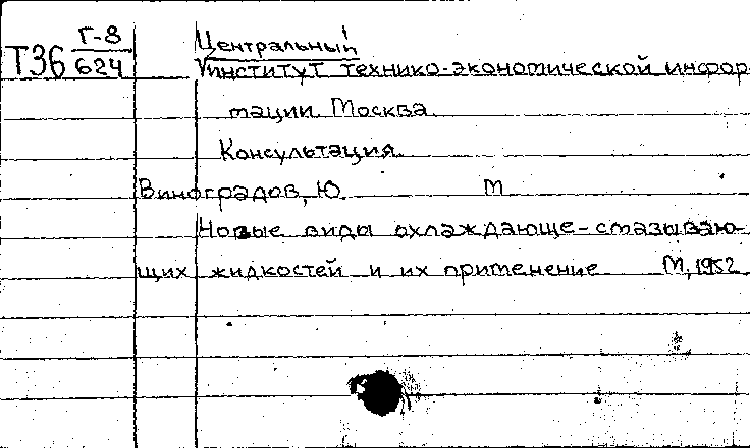 Т36 Г-8
624
Центральный
институт технико-экономической инфор-
мации. Москва.
Консультация.
Виноградов, Ю. М
Новые виды охлаждающе-смазываю-
щих жидкостей и их применение М, 1952